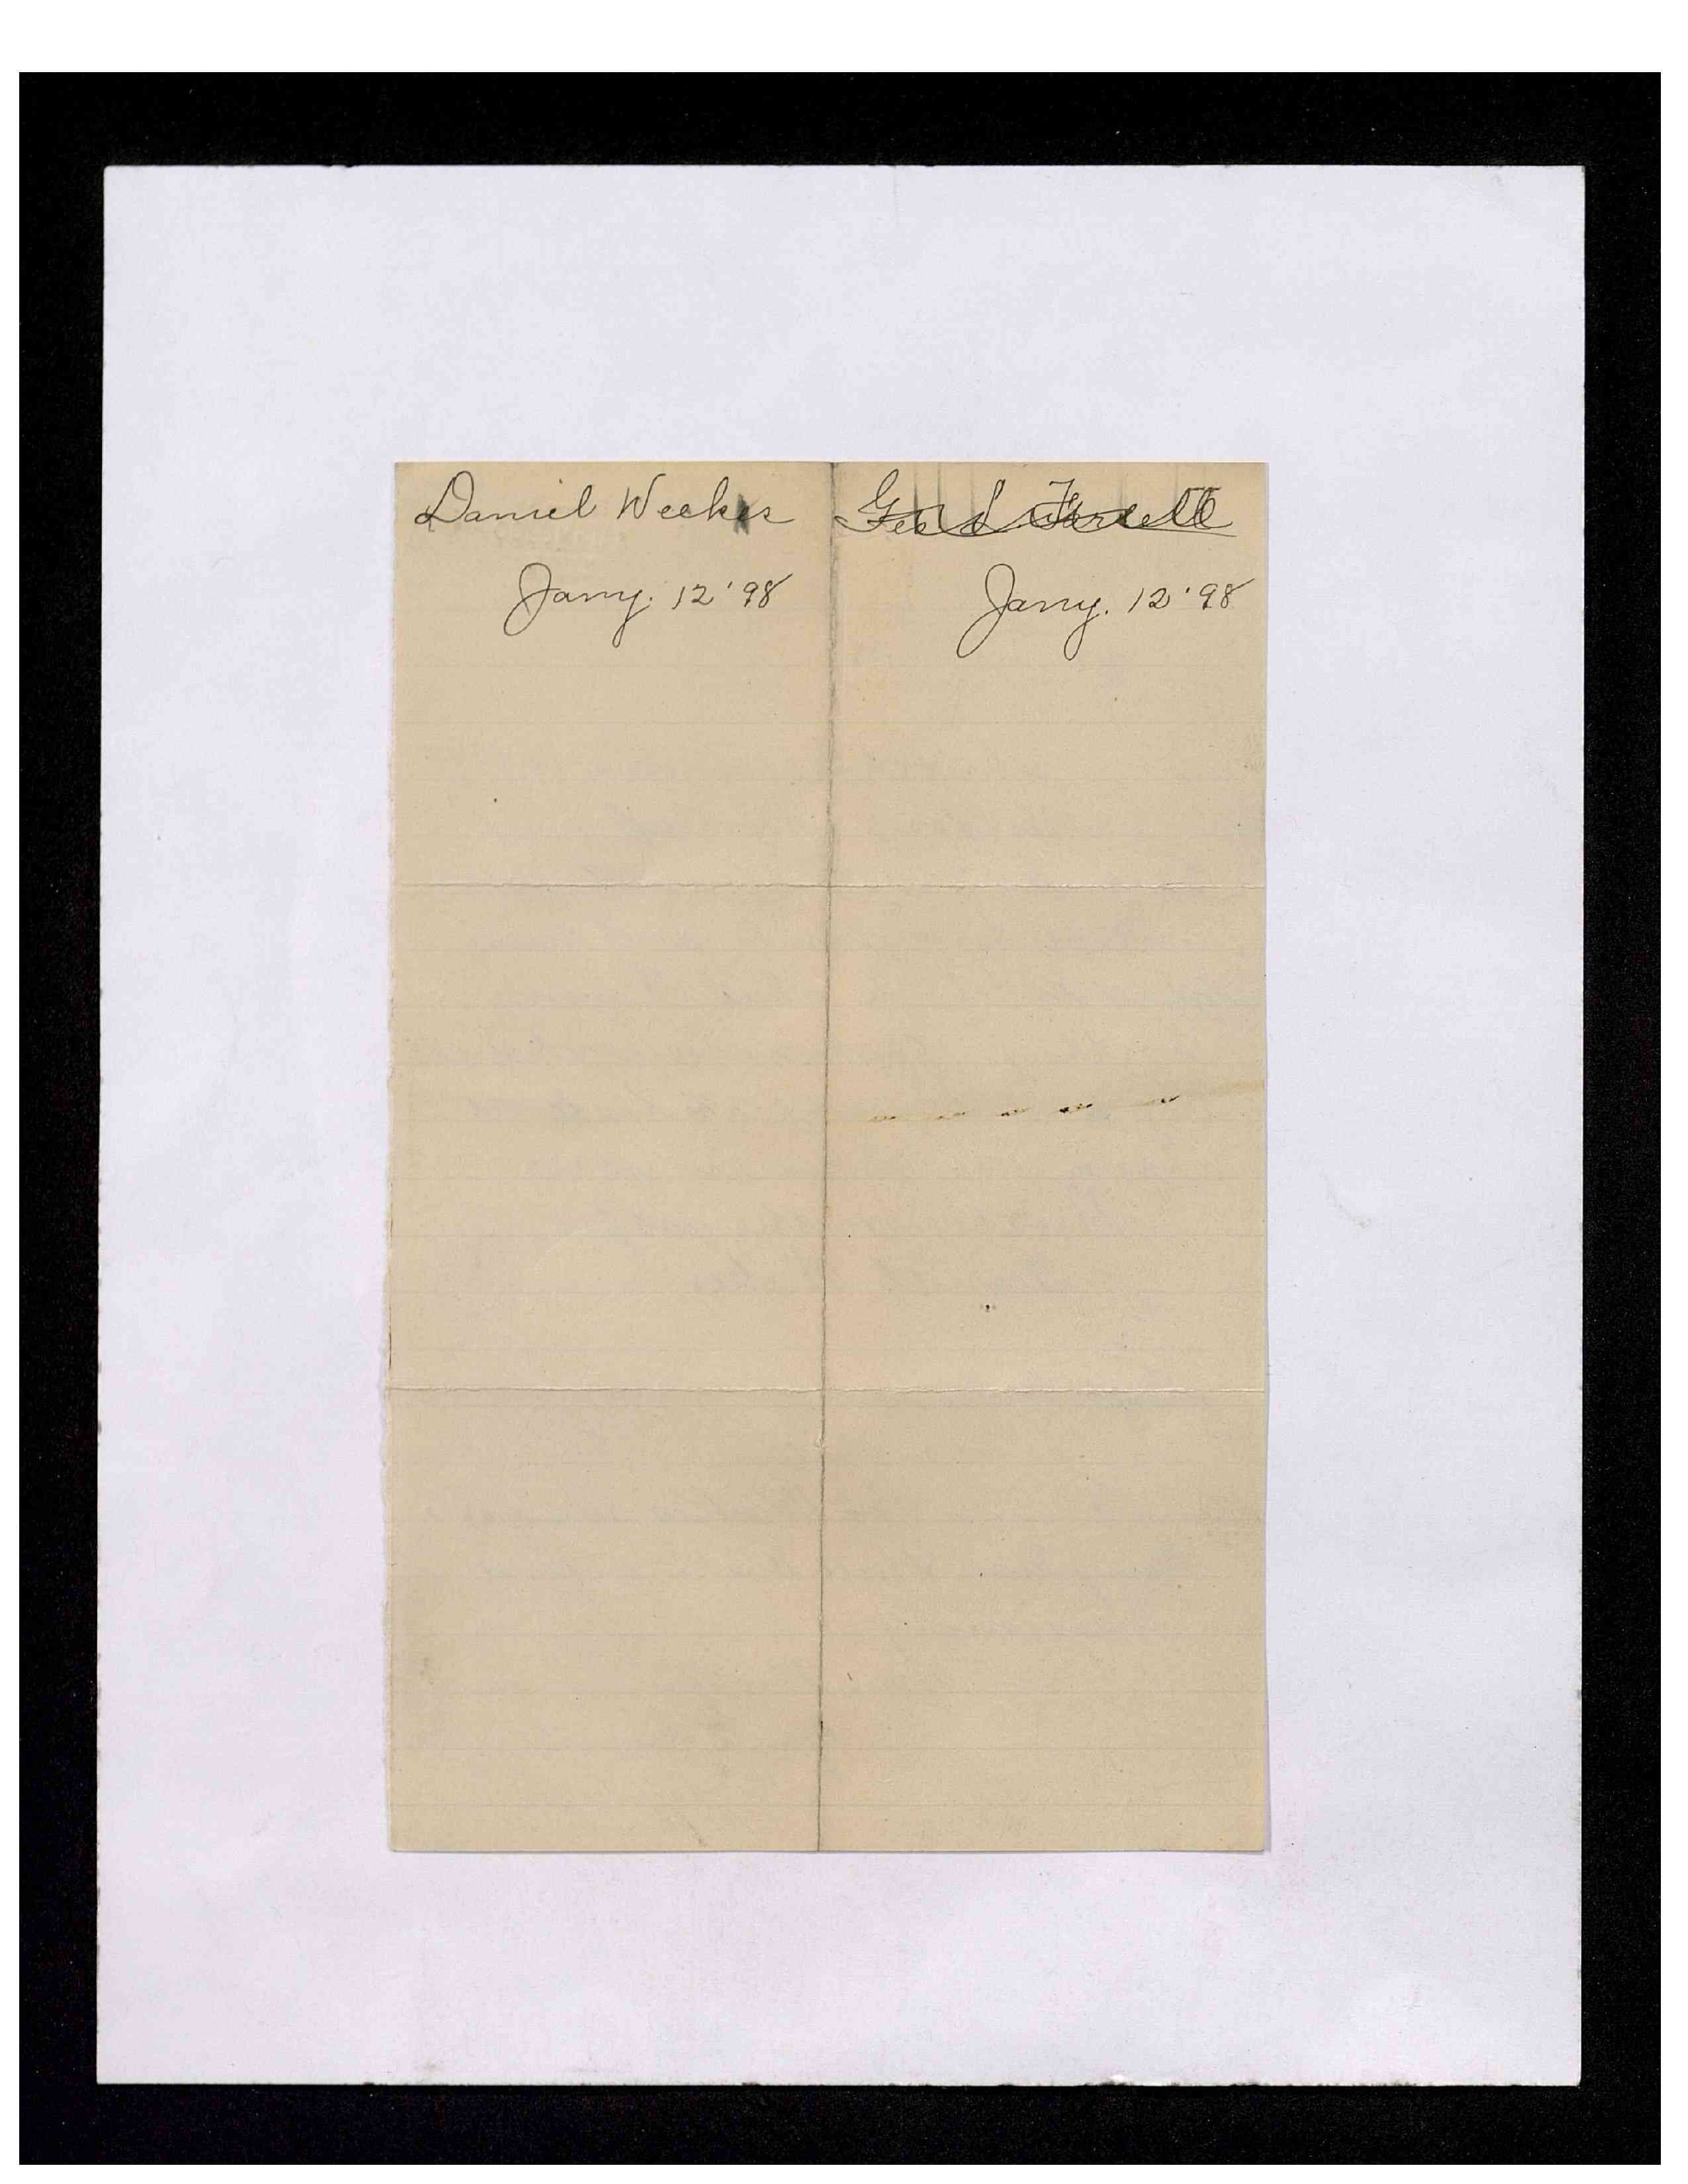 Daniel Weekes
Jany. 12 '98
Geo
Jany. 12 '98